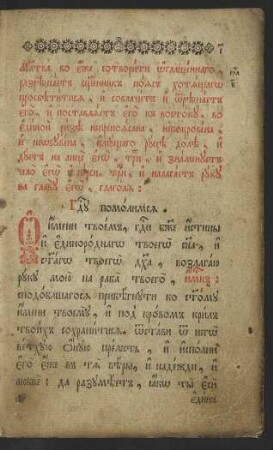 Мл҃тва во є҆́же сотвори́ти ѡ҆глаше́ннаго,
разрѣша́етъ сщ҃е́нникъ по́ѧсъ хотѧ́щагѡ
просвѣти́тисѧ, и҆ совлачи́тъ и҆ ѿрѣша́етъ
є҆го̀, и҆ поставлѧ́етъ є҆го̀ къ восто́кꙋ, во
є҆ди́ной ри́зѣ неѡпоѧ́сана, нептокрове́на,
и҆ неѡбꙋве́на, и҆мꙋ́щаго рꙋ́цѣ до́лѣ, и҆
дꙋ́етъ на лицѐ є҆гѡ̀ три́, и҆ зна́менꙋетъ
чело̀ є҆гѡ̀ и҆ пе́рси, три́, и҆ налага́етъ рꙋ́кꙋ
на главꙋ̀ є҆гѡ̀, глаго́лѧ:
Гдⷭ҇ꙋ помо́лимсѧ.
Ѡ҆ и҆́мени твое́мъ, гдⷭ҇и бж҃е и҆́стины
и҆ є҆диноро́днагѡ твоегѡ̀ сн҃а, и҆
ст҃а́гѡ твоегѡ̀ дх҃а, возлага́ю
рꙋ́кꙋ мою̀ на раба̀ твоего̀, и҆́мкъ:
сподо́бльшагосѧ прибѣ́гнꙋти ко ст҃о́мꙋ
и҆́мени твоемꙋ̀, и҆ под̾ кро́вомъ кри́лъ
твои́хъ сохрани́тисѧ. ѿста́ви ѿ негѡ̀
ве́тхꙋю ѻ҆́нꙋю пре́лесть, и҆ и҆спо́лни
є҆го̀ є҆́же въ тѧ̀ вѣ́ры, и҆ наде́жди, и҆
любвѐ: да разꙋмѣ́етъ, ꙗ҆́кѡ ты̀ є҆сѝ
є҆ди́нъ